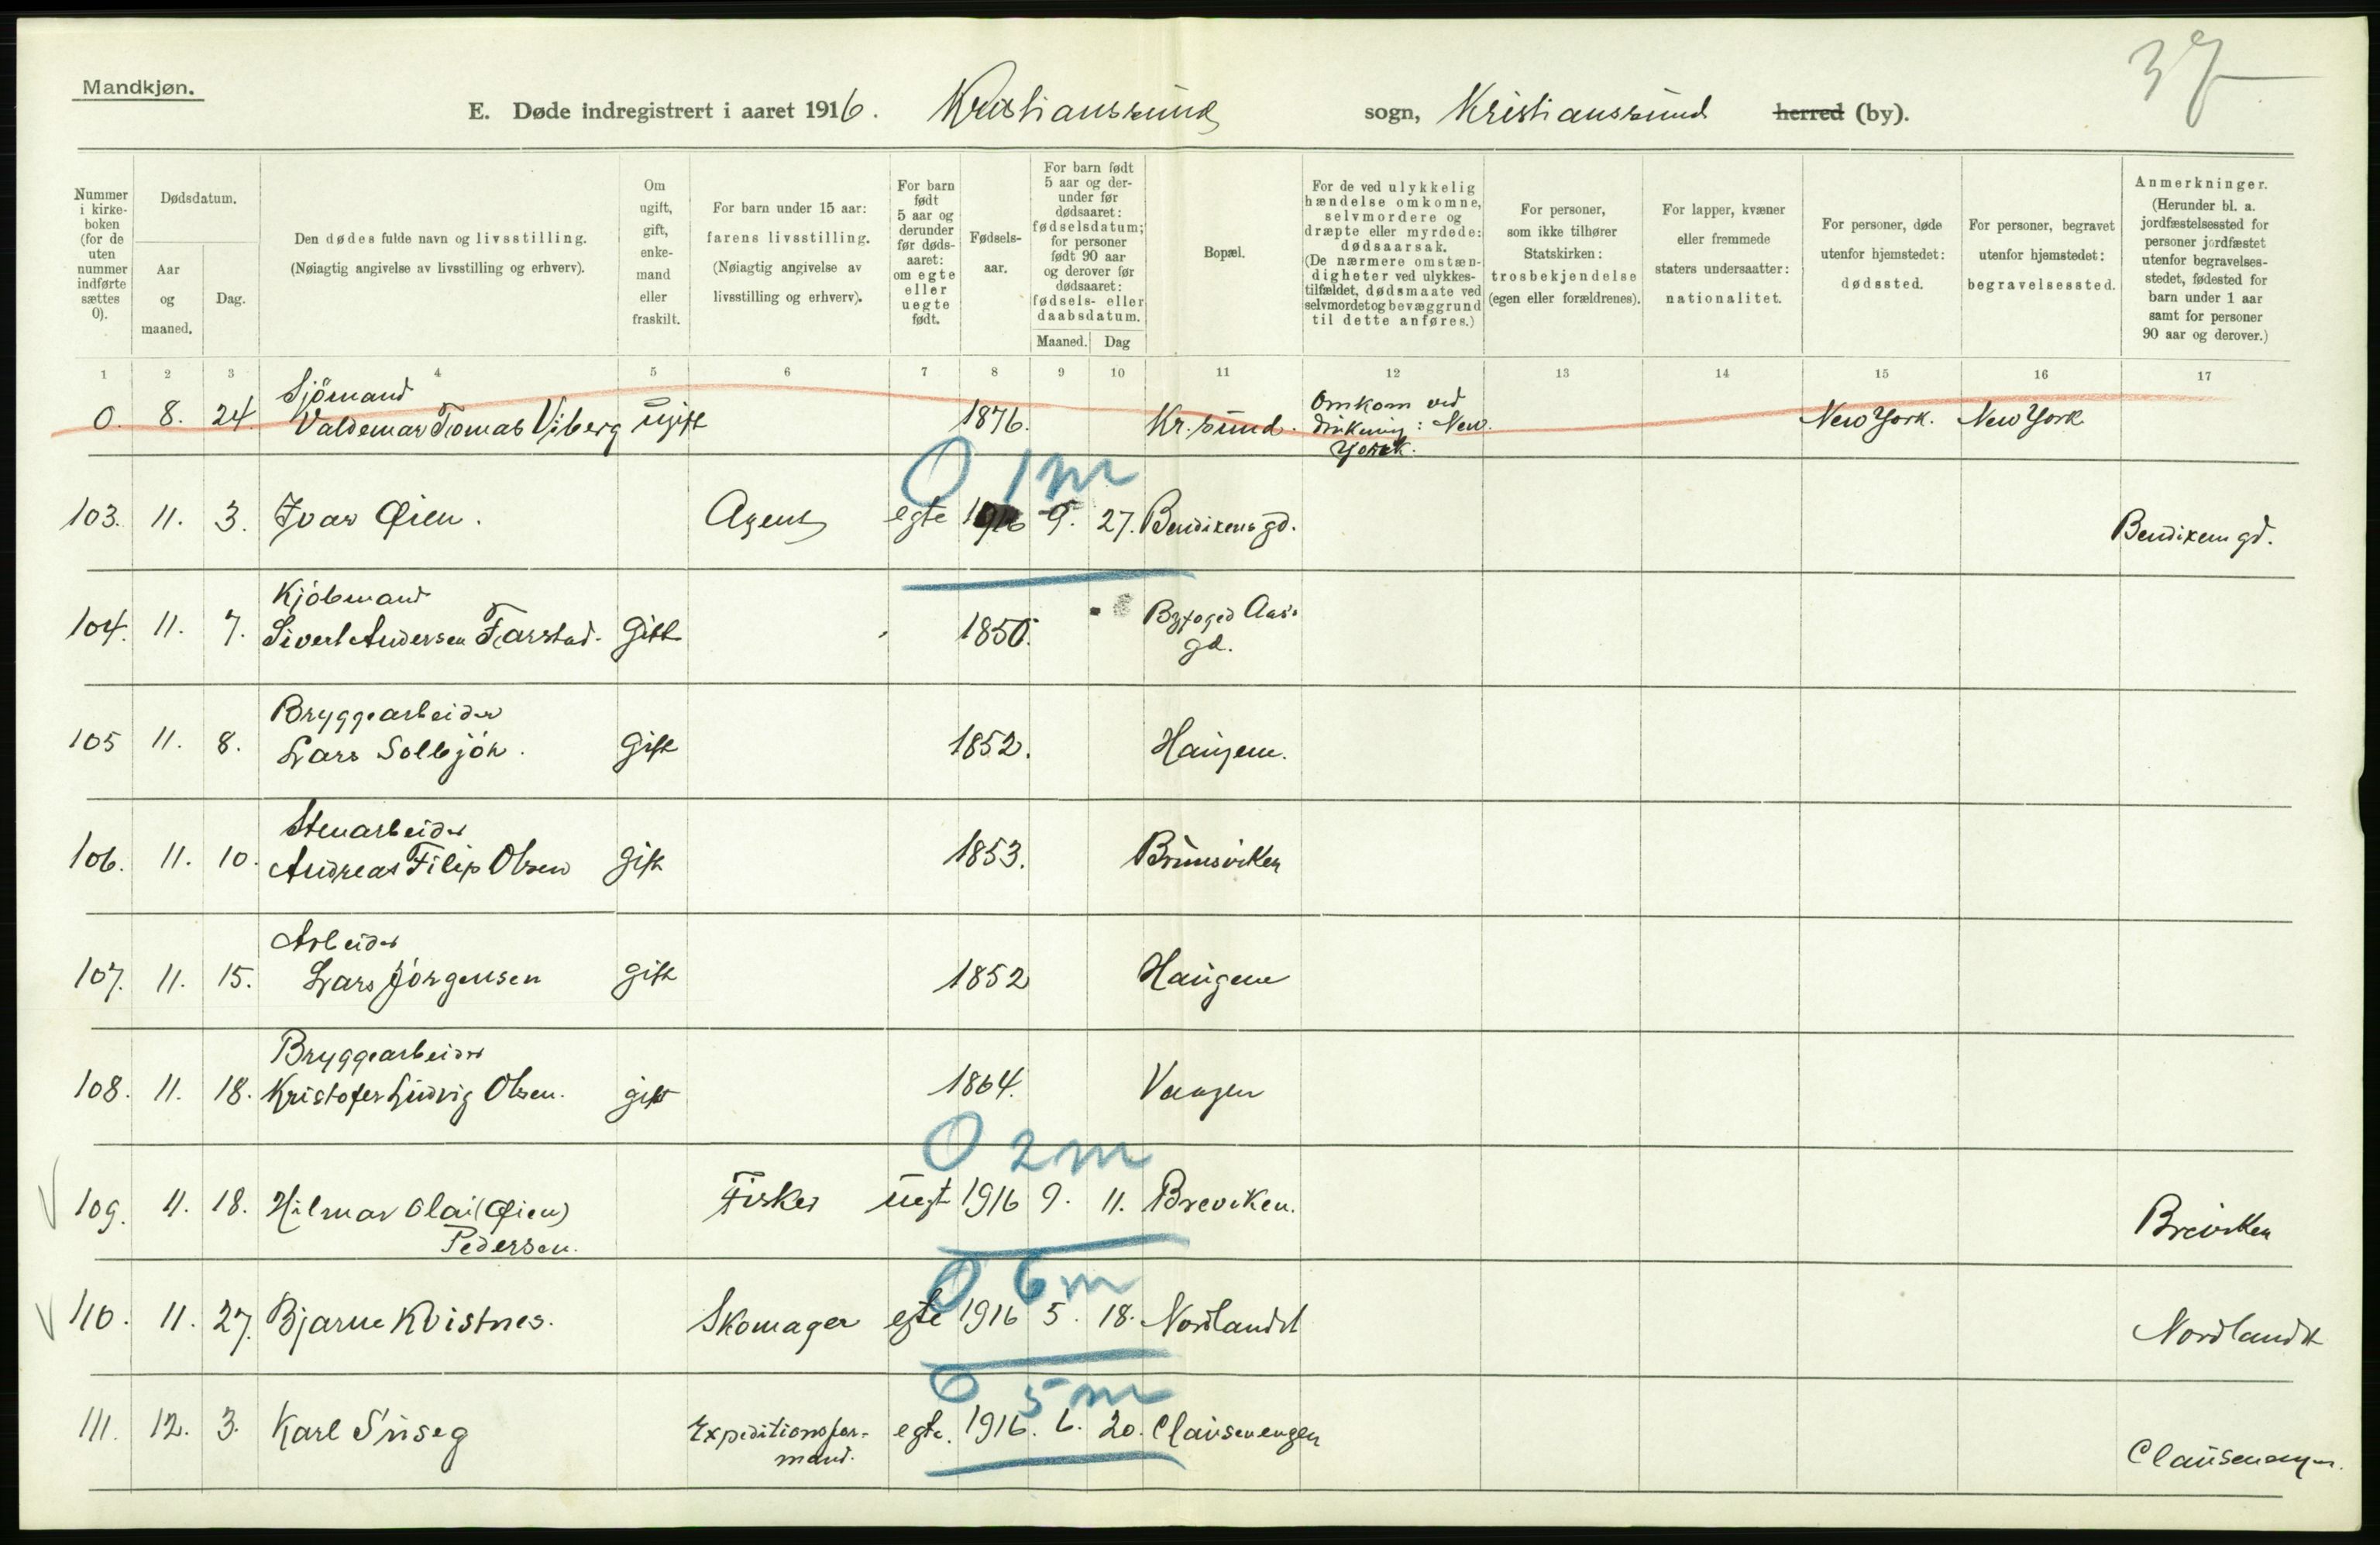 37
Mandkjøn.
E. Døde indregistrert i aaret 1916. Kristianssund sogn, Kristianssund herred (by).
Nummer i kirke-boken (for de uten nummer indførte sættes 0).
Dødsdatum.
Aar og maaned.
Dag.
Den dødes fulde navn og livsstilling.
(Nøiagtig angivelse av livsstilling og erhverv).
Om ugift, gift, enke-mand eller fraskilt.
For barn under 15 aar: farens livsstilling.
(Nøiagtig angivelse av livsstilling og erhverv).
For barn født 5 aar og derunder før døds-aaret: om egte eller uegte født.
Fødsels-aar.
For barn født 5 aar og der-under før dødsaaret: fødselsdatum; for personer født 90 aar og derover før dødsaaret: fødsels- eller daabsdatum.
Maaned. Dag
Bopæl.
For de ved ulykkelig hændelse omkomne, selvmordere og dræpte eller myrdede: dødsaarsak.
(De nærmere omstæn-digheter ved ulykkes-tilfældet, dødsmaate ved selvmordet og bevæggrund til dette anføres.)
For personer, som ikke tilhører Statskirken: trosbekjendelse (egen eller forældrenes).
For lapper, kvæner eller fremmede staters undersaatter: nationalitet.
For personer, døde utenfor hjemstedet: dødssted.
For personer, begravet utenfor hjemstedet: begravelsessted.
Anmerkninger.
(Herunder bl. a. jordfæstelsessted for personer jordfæstet utenfor begravelses-stedet, fødested for barn under 1 aar samt for personer 90 aar og derover.)
1 2 3 4 5 6 7 8 9 10 11 12 13 14 15 16 17
Sjömand
0. 8. 24. Valdemar Tomas Viberg ugift 1876. Kr.sund. Omkom ved drukning: New York. New York. New York.
0 1 m
103. 11. 3. Ivar Øien. Agent egte 1916 9. 27. Bendixens gd. Bendixens gd.
Kjöbmand
104. 11. 7. Sivert Andersen Farstad. Gift 1850. Byfoged Aas' gd.
Bryggearbeider
105 11. 8. Lars Solbjör. Gift 1852. Haugene.
Stenarbeider
106. 11. 10. Andreas Filip Olsen gift 1853. Brunsviken
Arbeider
107. 11. 15. Lars Jörgensen gift 1852 Haugene
Bryggearbeider
108. 11. 18. Kristofer Ludvig Olsen. gift 1864. Vaagen
0 2 m
109. 11. 18. Hilmar Olai (Øien) Pedersen. Fisker uegt 1916 9. 11. Breviken. Breviken
0 6 m
110. 11. 27. Bjarne Kvistnes. Skomager egte 1916 5. 18. Nordlandet Nordlandet
0 5 m
111. 12. 3. Karl Expeditionsfor-mand. egte. 1916. 6. 20. Clausenengen Clausenengen.